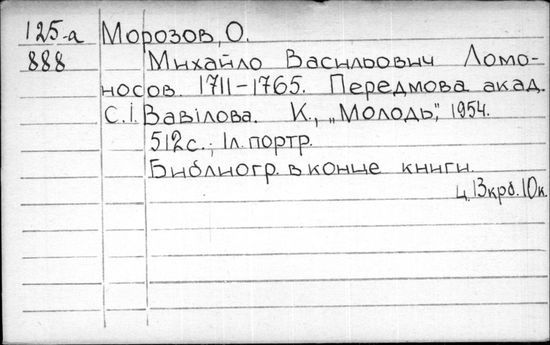 125-а Морозов, О.
888 Михайло Васильович Ломо-
носов. 1711-1765. Передмова акад.
С.І. Вавілова. К., „Молодь", 1954.
512с.; Іл. портр.
Библиогр. в конце книги.
ц. 13крб. 10к.